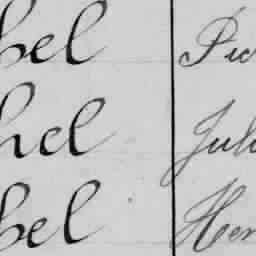 bel Pie
hel Juli
bel Hen